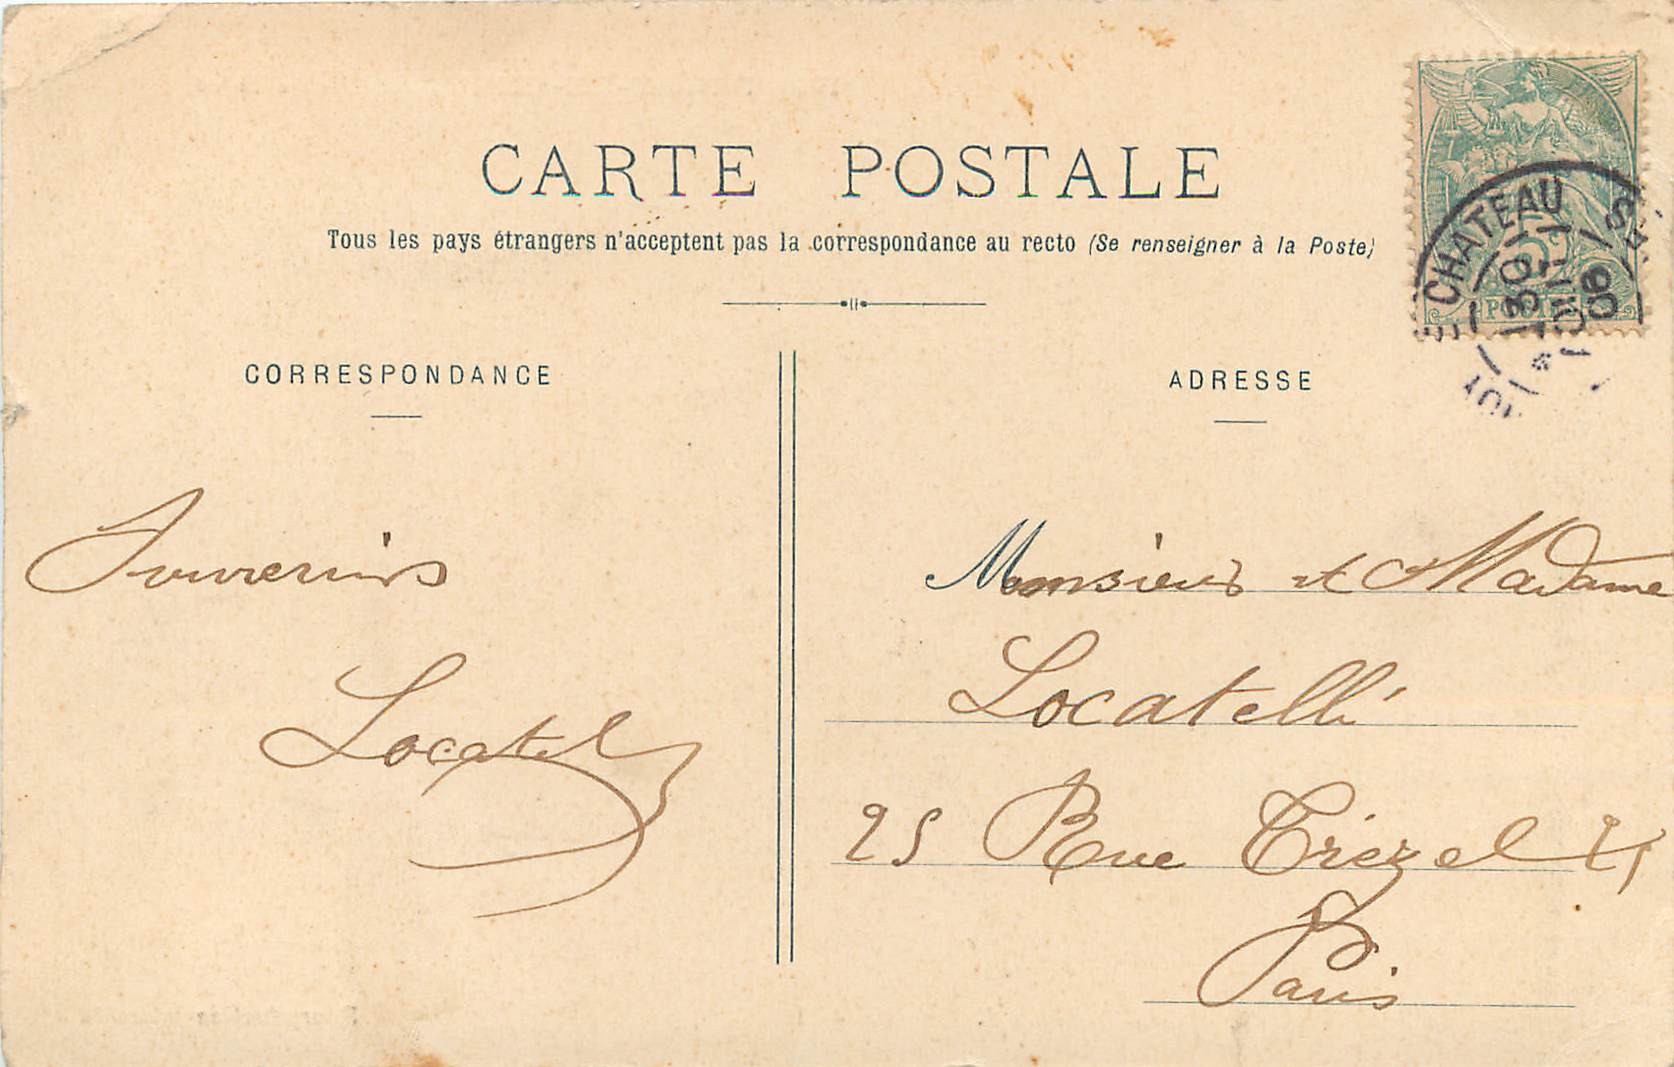 CARTE POSTALE
Tous les pays étrangers n'acceptent pas la correspondance au recto (Se renseigner à la Poste)
CORRESPONDANCE
ADRESSE
POSTES
CHATEAU
13 30
JUIL
06
Souvenirs
Locatelli
Monsieur et Madame
Locatelli
25 Rue Trézel 25
Paris